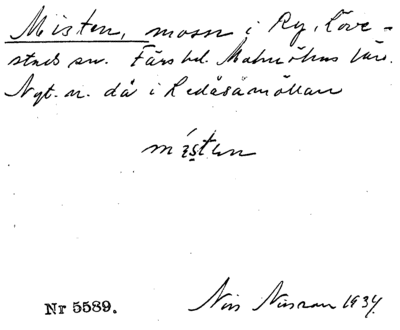 Misten, mosse i Ry, Löve-
stads sn. Färs hd. Malmöhus län.
Nyt. n. då i Redåsamöllan
místen
Nr 5589. Nils Nilsson 1934.